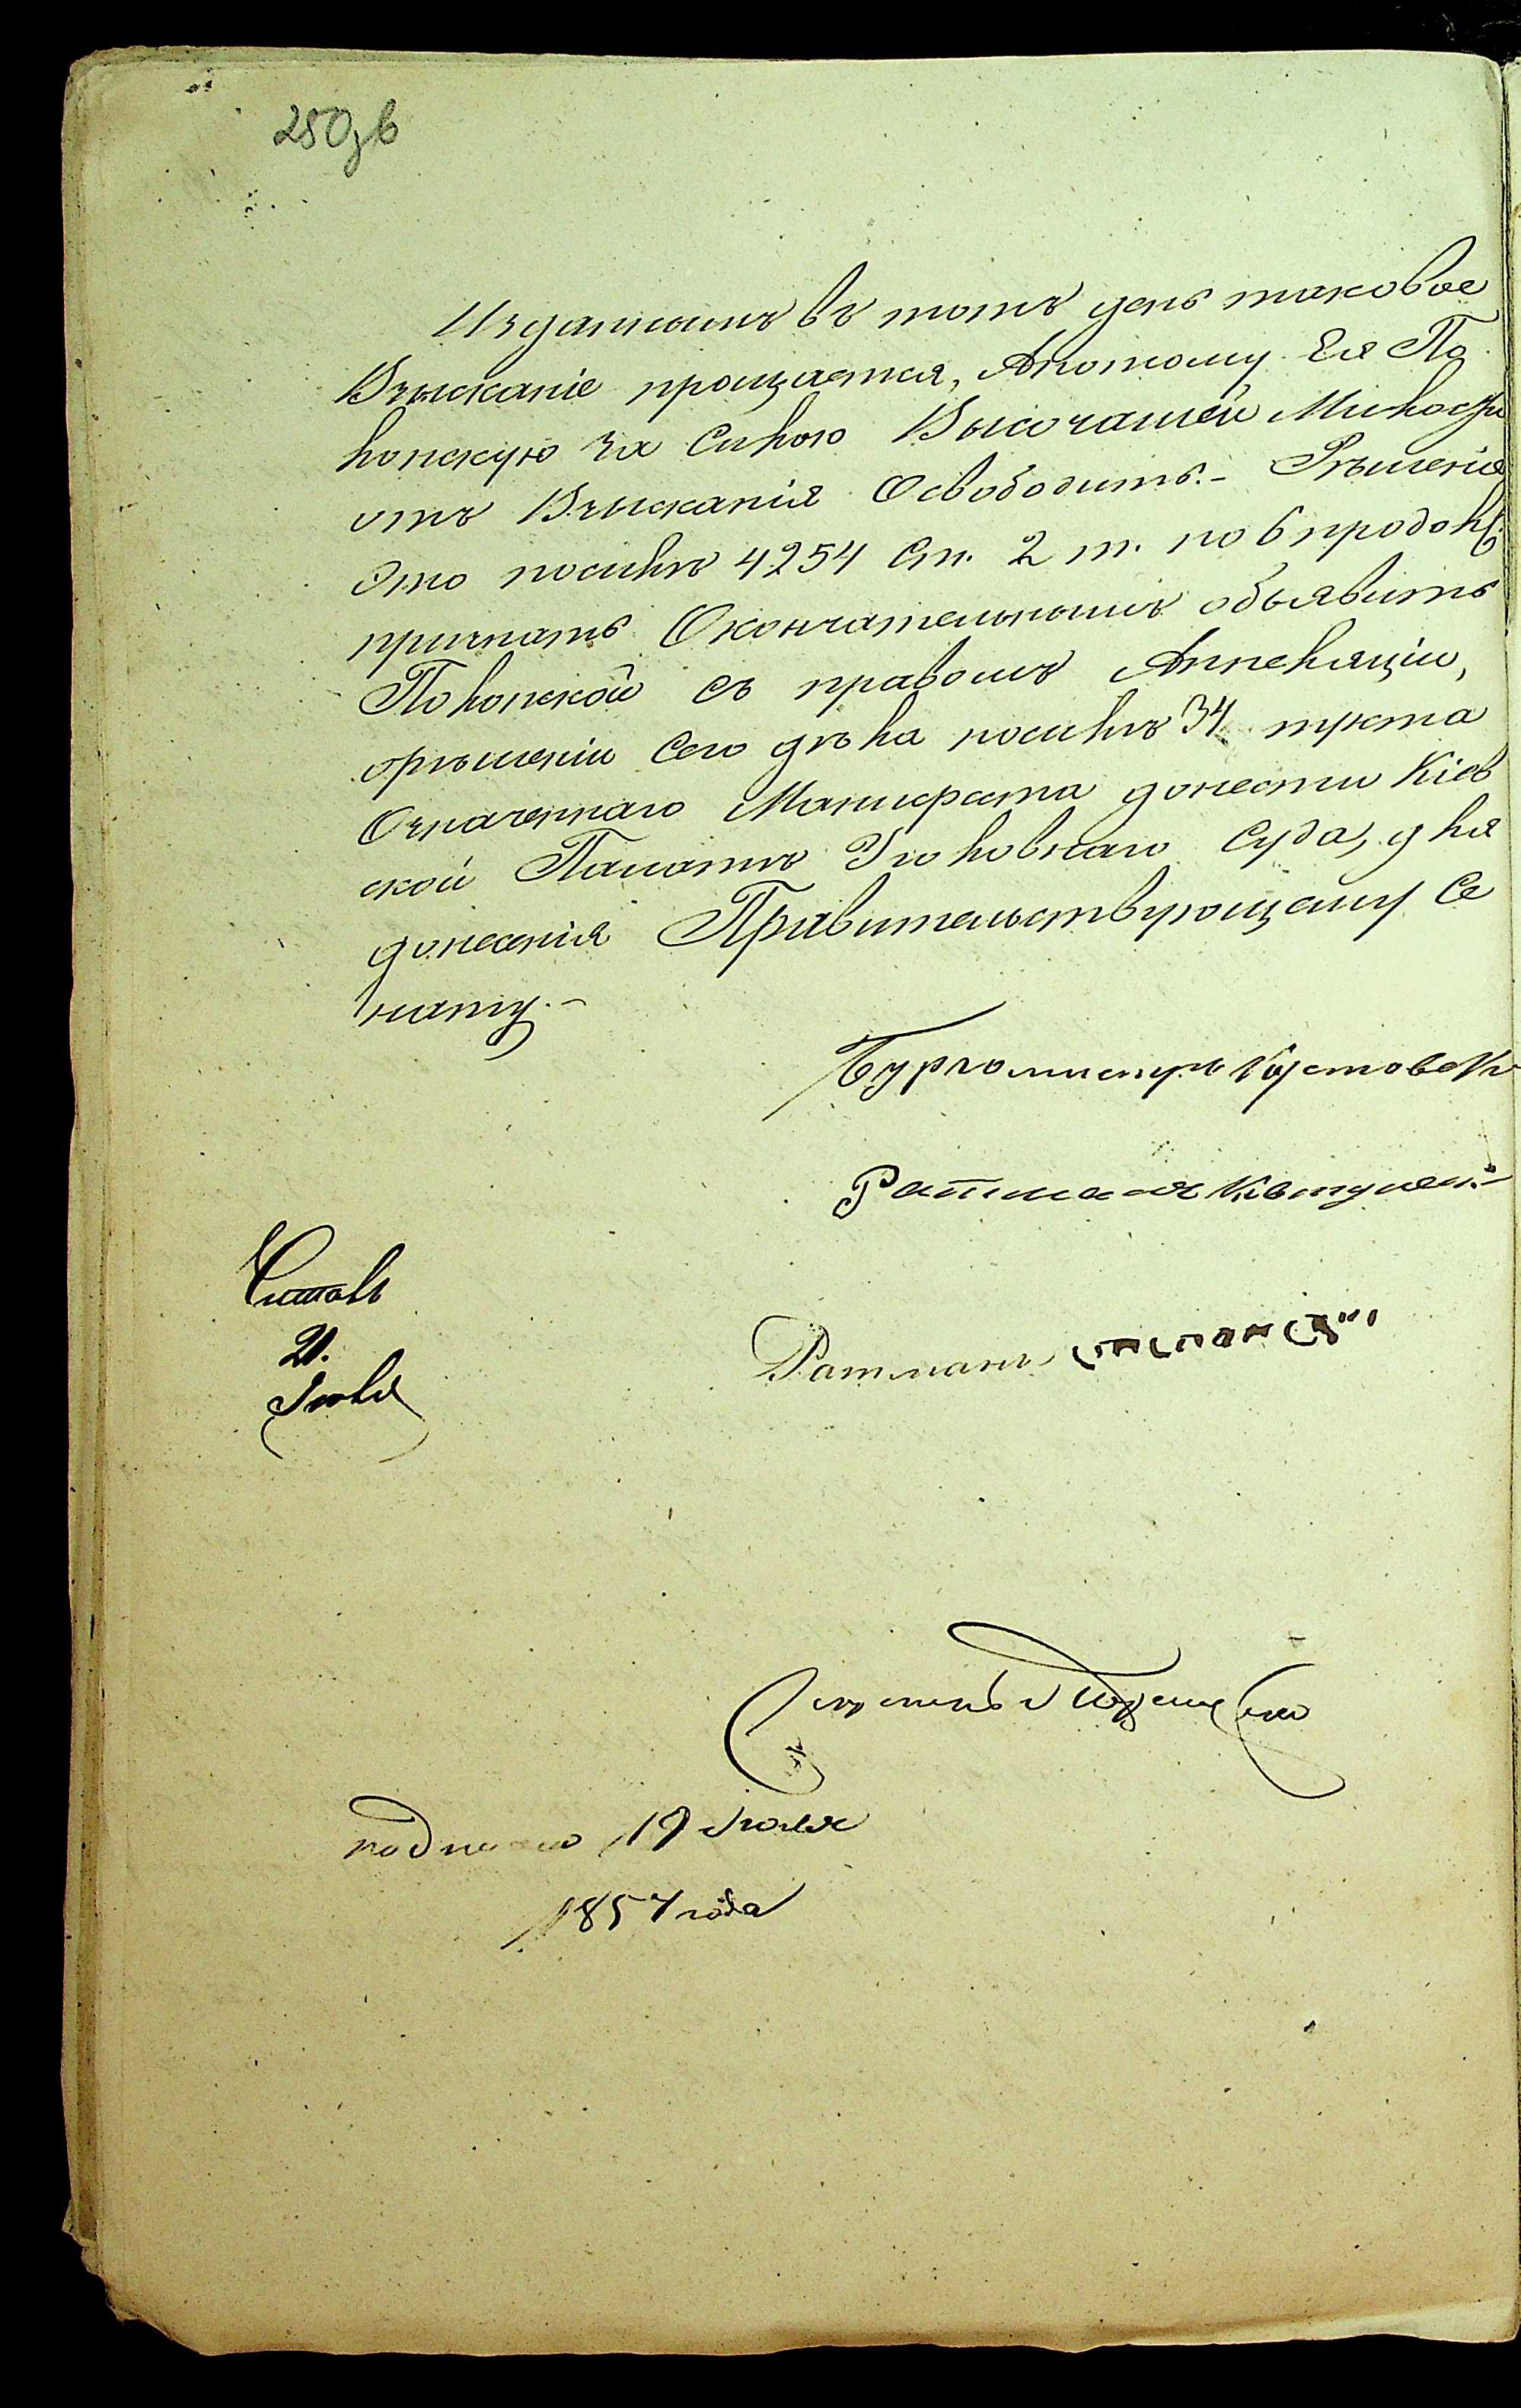 250зв
Изданнымъ въ томъ день таковое
Взысканіе прощается, Апотому Ея По
лонскую за Силою Высочайшей Милости
отъ Взысканія Освободить. - Рѣшеніе
Это посилѣ 4254 Ст. 2 т. по 6 продолж.
признать Окончательнымъ объявить
Полонской съ правомъ Аппеляціи,
орѣшеніи Сего дѣла посилѣ 34 пункта
Означеннаго Манифеста донести Кіев
ской Палатѣ Уголовнаго Суда, для
донесенія Правительствующему Се
нату. -
Бургомистръ
Ратманъ
Читалъ
21.
Іюля
Ратманъ
подписано 19 Іюля
1857 года